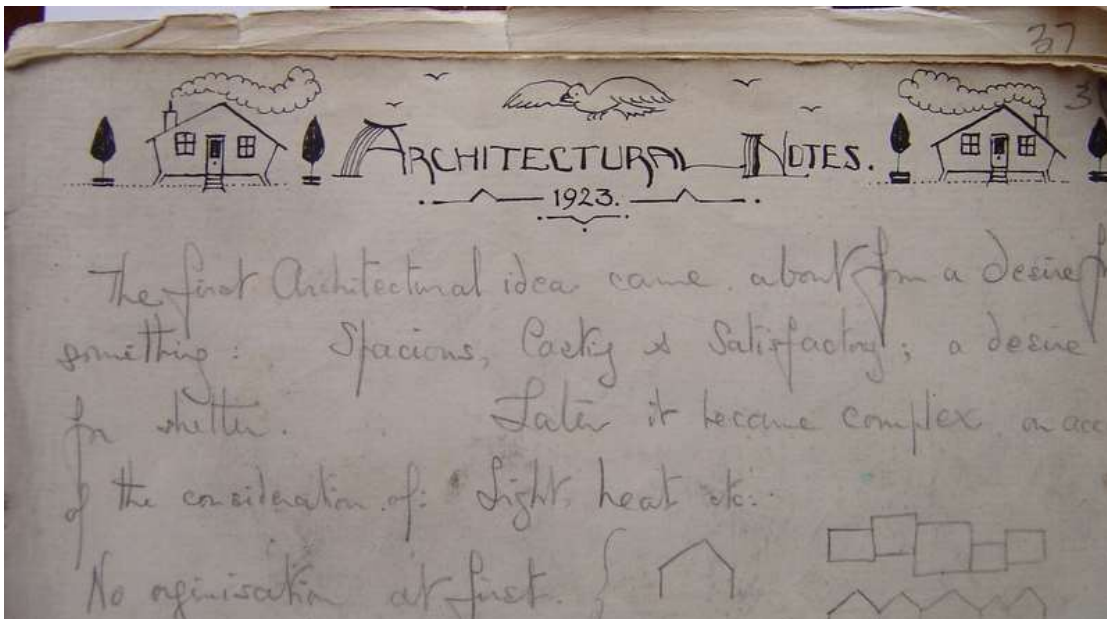 37
3
ARCHITECTURAL NOTES.
1923.
The first Architectural idea came about from a desire
something: Spacious, & Satisfactory; a desire
for shelter. Later it became complex on acc
of the consideration of: Light, heat etc:
No orginisation at first.